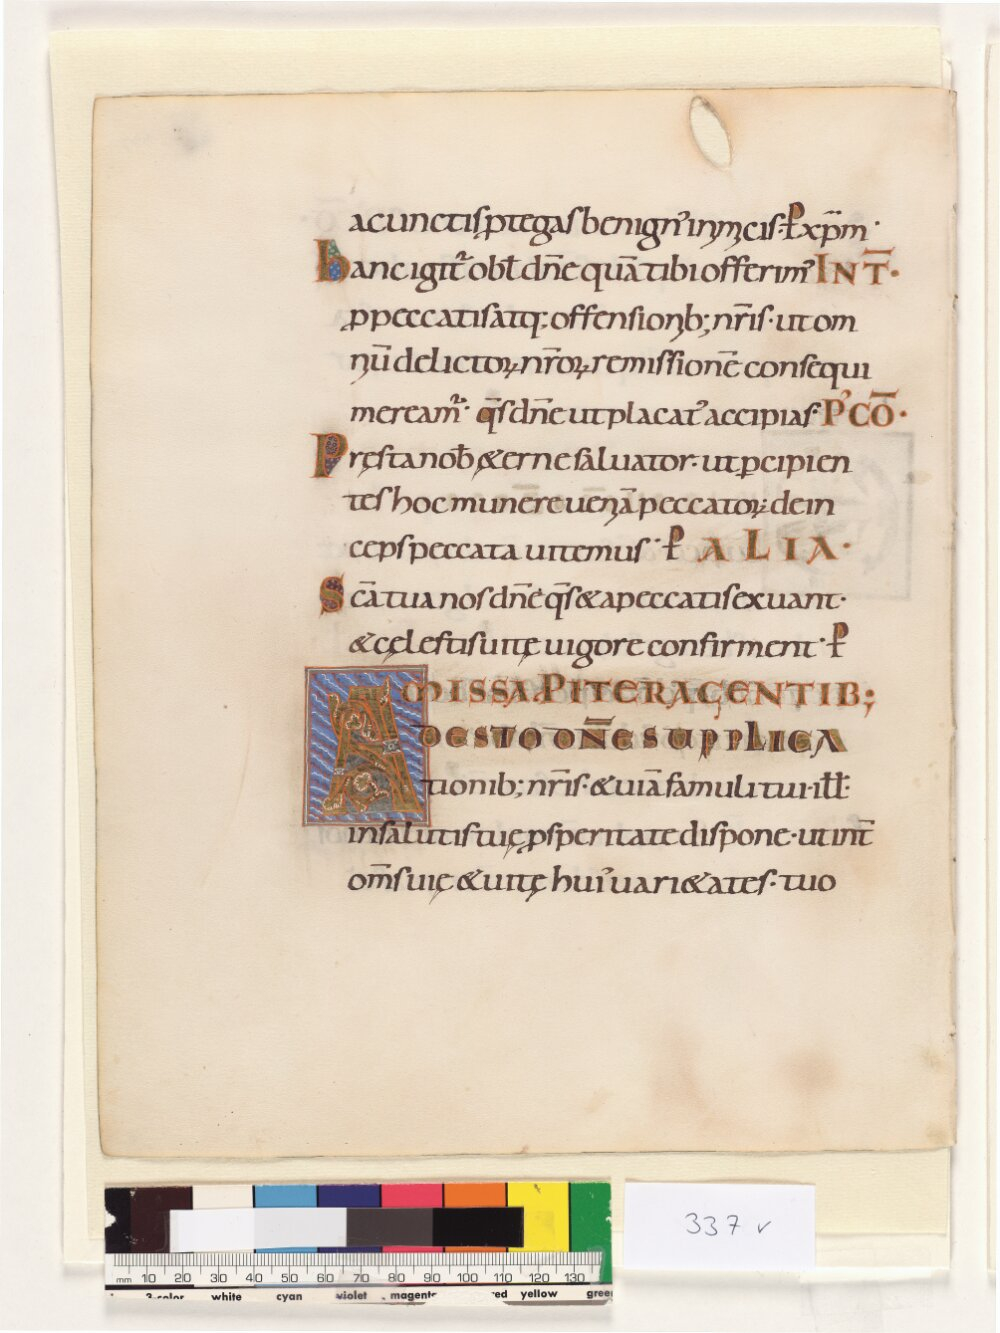 a cunctis ꝓtegas benignꝰ inimicis· ꝑ xp̄m·
hanc igit᷑ obł dn̄e quā tibi offerimꝰ INT̄·
ꝓ peccatis atq: offensionib; nr̄is· ut om
niū delictoꝝ nr̄oꝝ remissionē consequi
meream᷑· qs̄ dn̄e ut placatꝰ accipias· PꝰCŌ·
Pręsta nob̄ &erne saluator· ut ꝑcipien
tes hoc munere ueniā peccatoꝝ· dein
ceps peccata uitemus· ꝑ ALIA·
Sc̄a tua nos dn̄e qs̄ & a peccatis exuant·
& cęlestis uitę uigore confirment· ꝑ
MISSA P ITER AGENTIB;
ADESTO DN̄E SUPPLICA
tionib; nr̄is· & uiā famuli tui· iłł·
in salutis tuę ꝓsperitate dispone· ut int̄
om̄s uię & uitę huiꝰ uari&ates· tuo
337 v
mm 10 20 30 40 50 60 70 80 90 100 110 120 130
3-color white cyan violet magenta red yellow green